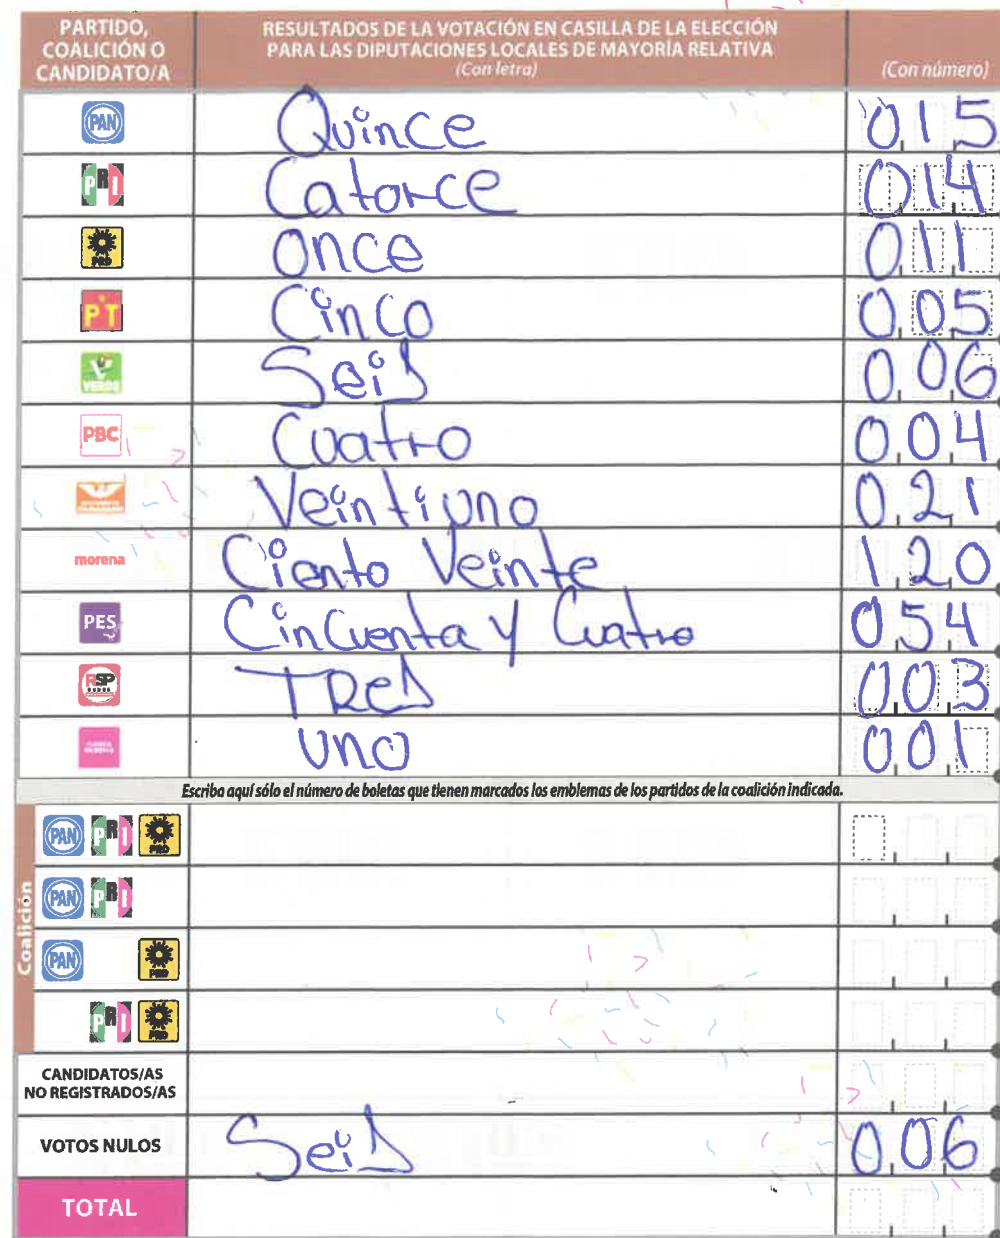 PARTIDO, COALICIÓN O CANDIDATO/A
RESULTADOS DE LA VOTACIÓN EN CASILLA DE LA ELECCIÓN PARA LAS DIPUTACIONES LOCALES DE MAYORÍA RELATIVA
(Con letra)
(Con número)
PAN Quince 015
PRI Catorce 014
PRD Once 011
PT Cinco 005
VERDE Seis 006
PBC Cuatro 004
Veintiuno 021
morena Ciento Veinte 120
PES Cincuenta y Cuatro 054
RSP TRes 003
uno 001
Escriba aquí sólo el número de boletas que tienen marcados los emblemas de los partidos de la coalición indicada.
Coalición
PAN PRI PRD
PAN PRI
PAN PRD
PRI PRD
CANDIDATOS/AS NO REGISTRADOS/AS
VOTOS NULOS Seis 006
TOTAL